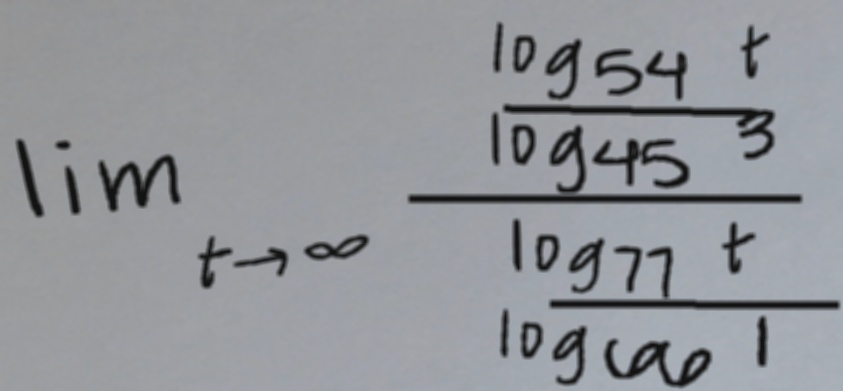 lim t→∞
log54 t
log45 3
log77 t
log66 1